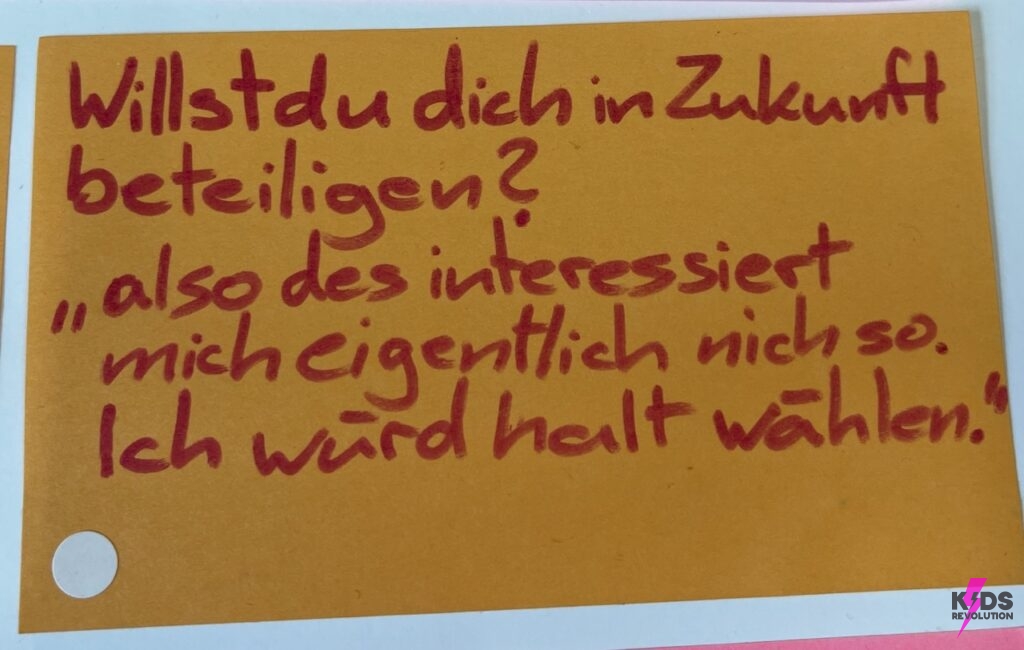 Willst du dich in Zukunft
beteiligen?
„also des interessiert
mich eigentlich nich so.
Ich würd halt wählen."
KIDS
REVOLUTION